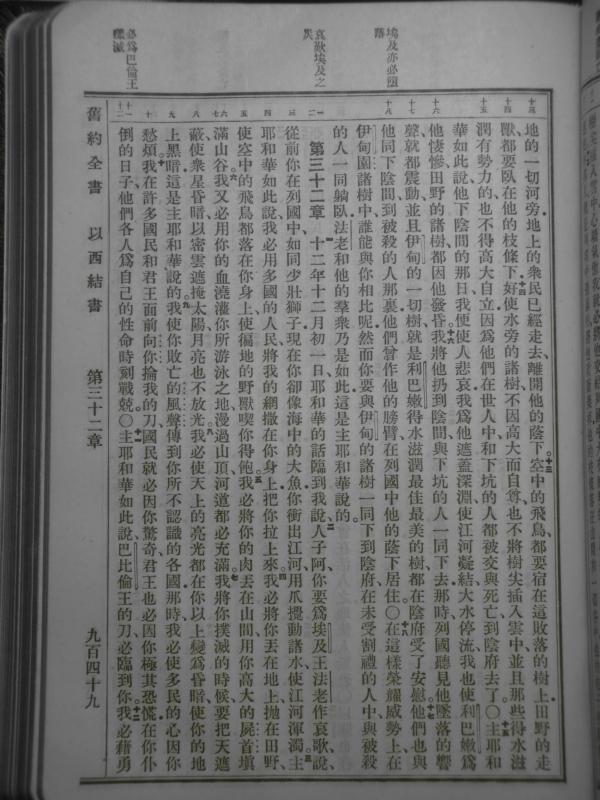 埃及亦必墮落
哀歎埃及之災
必爲巴倫王殲滅
地的一切河旁地上的衆民已經走去離開他的蔭下、十三空中的飛鳥、都要宿在這敗落的樹上、田野的走
獸、都要臥在他的枝條下、十四好使水旁的諸樹不因高大而自尊、也不將樹尖插入雲中、並且那些得水滋
潤有勢力的、也不得高大自立、因爲他們在世人中、和下坑的人都被交與死亡、到陰府去了。○十五主耶和
華如此說、他下陰間的那日、我便使人悲哀、我爲他遮蓋深淵、使江河凝結、大水停流、我也使利巴嫩爲
他悽慘、田野的諸樹都因他發昏。十六我將他扔到陰間、與下坑的人一同下去、那時列國聽見他墜落的響
聲、就都震動、並且伊甸的一切樹、就是利巴嫩得水滋潤最佳最美的樹、都在陰府受了安慰。十七他們也與
他同下陰間、到被殺的人那裏、他們曾作他的膀臂、在列國中他的蔭下居住。○十八在這樣榮耀威勢上、在
伊甸園諸樹中、誰能與你相比呢、然而你要與伊甸的諸樹一同下到陰府、在未受割禮的人中、與被殺
的人一同躺臥、法老和他的羣衆乃是如此、這是主耶和華說的。
第三十二章　十二年十二月初一日、耶和華的話臨到我說、二人子阿、你要爲埃及王法老作哀歌說、
從前你在列國中、如同少壯獅子、現在你卻像海中的大魚、你衝出江河、用爪攪動諸水、使江河渾濁。三主
耶和華如此說、我必用多國的人民、將我的網撒在你身上、把你拉上來。四我必將你丟在地上、拋在田野、
使空中的飛鳥都落在你身上、使徧地的野獸喫你得飽。五我必將你的肉丟在山間、用你高大的屍首填
滿山谷。六我又必用你的血澆灌你所游泳之地、漫過山頂、河道都必充滿。七我將你撲滅的時候、要把天遮
蔽、使衆星昏暗、以密雲遮掩太陽、月亮也不放光。八我必使天上的亮光都在你以上變爲昏暗、使你的地
上黑暗、這是主耶和華說的。九我使你敗亡的風聲傳到你所不認識的各國、那時我必使多民的心因你
愁煩。十我在許多國民和君王面前向你掄我的刀、國民就必因你驚奇、君王也必因你極其恐慌、在你仆
倒的日子、他們各人爲自己的性命時刻戰兢。○十一主耶和華如此說、巴比倫王的刀必臨到你。十二我必藉勇
舊約全書　以西結書　第三十二章　九百四十九